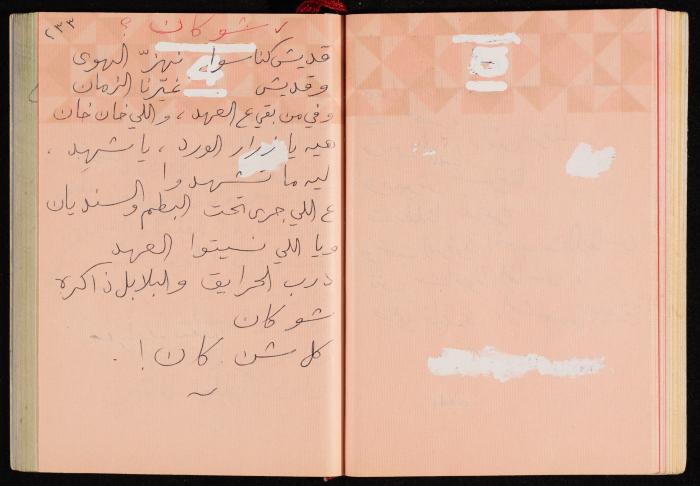 ٢٣٣
شو كان ؟
قديش كنا سوا نهزّ الهوى
وقديش غيّرنا الزمان
وفي من بقي ع العهد ، واللي خان خان
هيه يا زرار الورد ، يا شهد .
ليه ما تشهدوا
ع اللي جرى تحت البطم والسنديان
ويا اللي نسيتوا العهد
درب الحرايق والبلابل ذاكره
شو كان
كل شن كان !